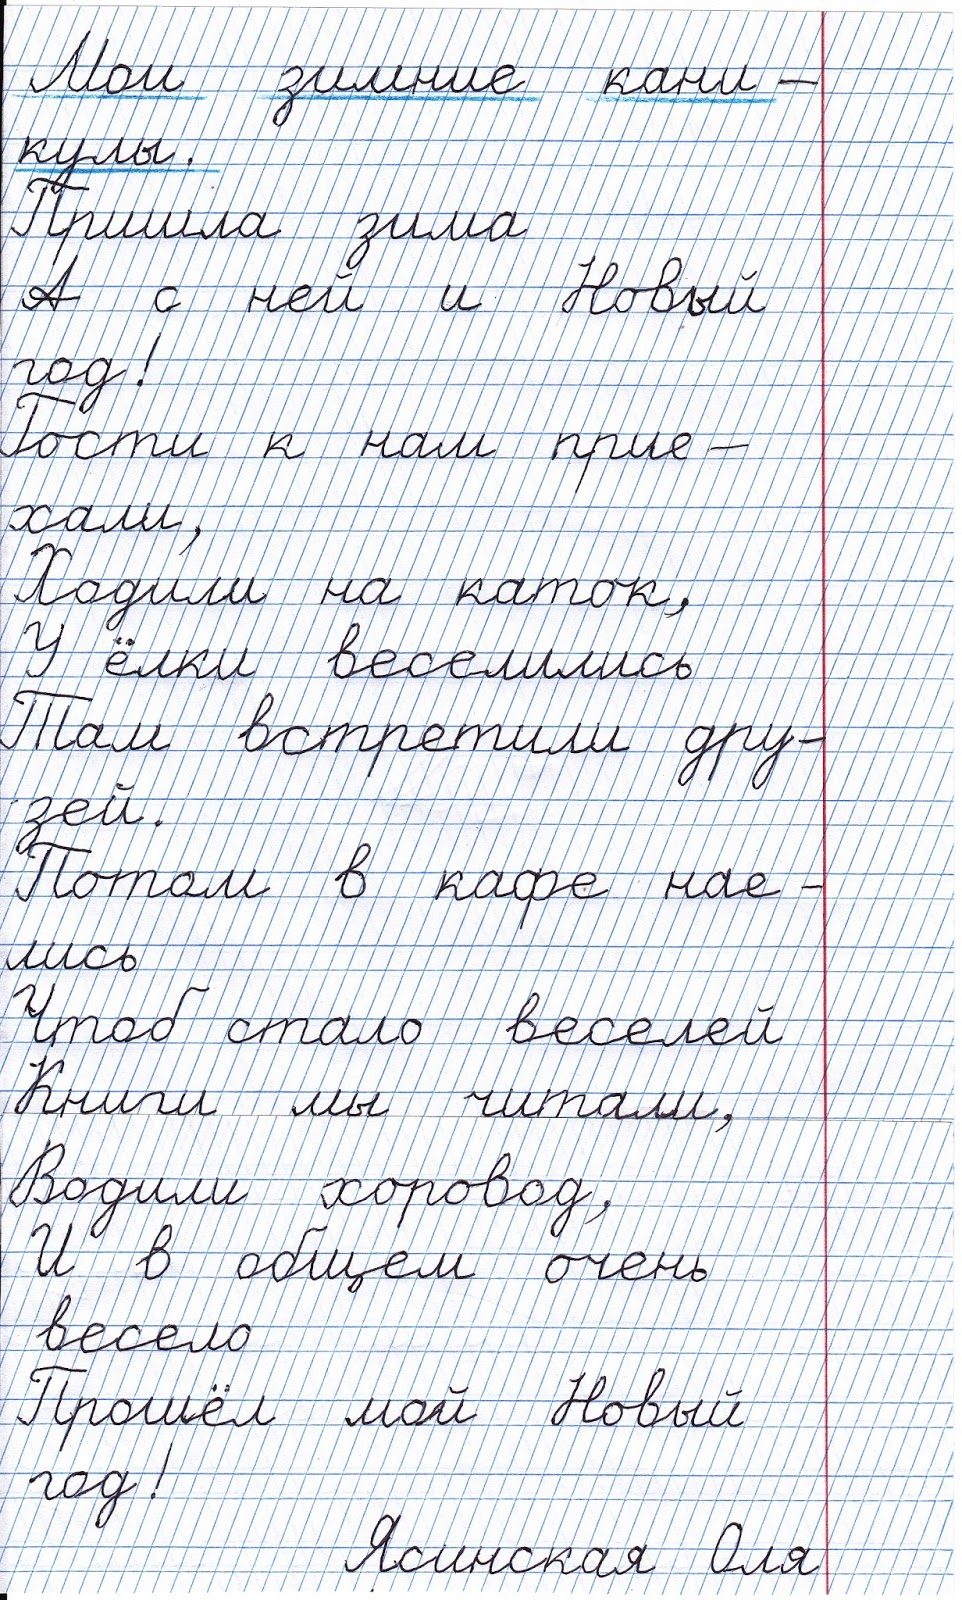 Мои зимние кани-
кулы.
Пришла зима
А с ней и Новый
год!
Гости к нам прие-
хали,
Ходили на каток,
У ёлки веселились
Там встретили дру-
зей.
Потом в кафе нае-
лись
Чтоб стало веселей
Книги мы читали,
Водили хоровод,
И в общем очень
весело
Прошёл мой Новый
год!
Ясинская Оля